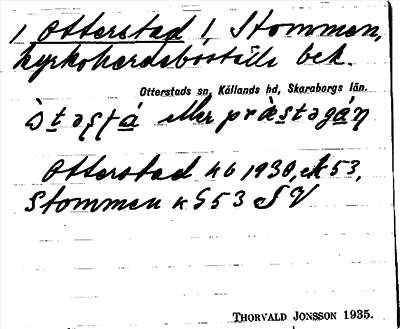 1 Otterstad 1, Stommen,
kyrkoherdeboställe bek.
Otterstads sn, Kållands hd, Skaraborgs län.
eller
Otterstad 1930, 53,
Stommen 53 SV
THORVALD JONSSON 1935.